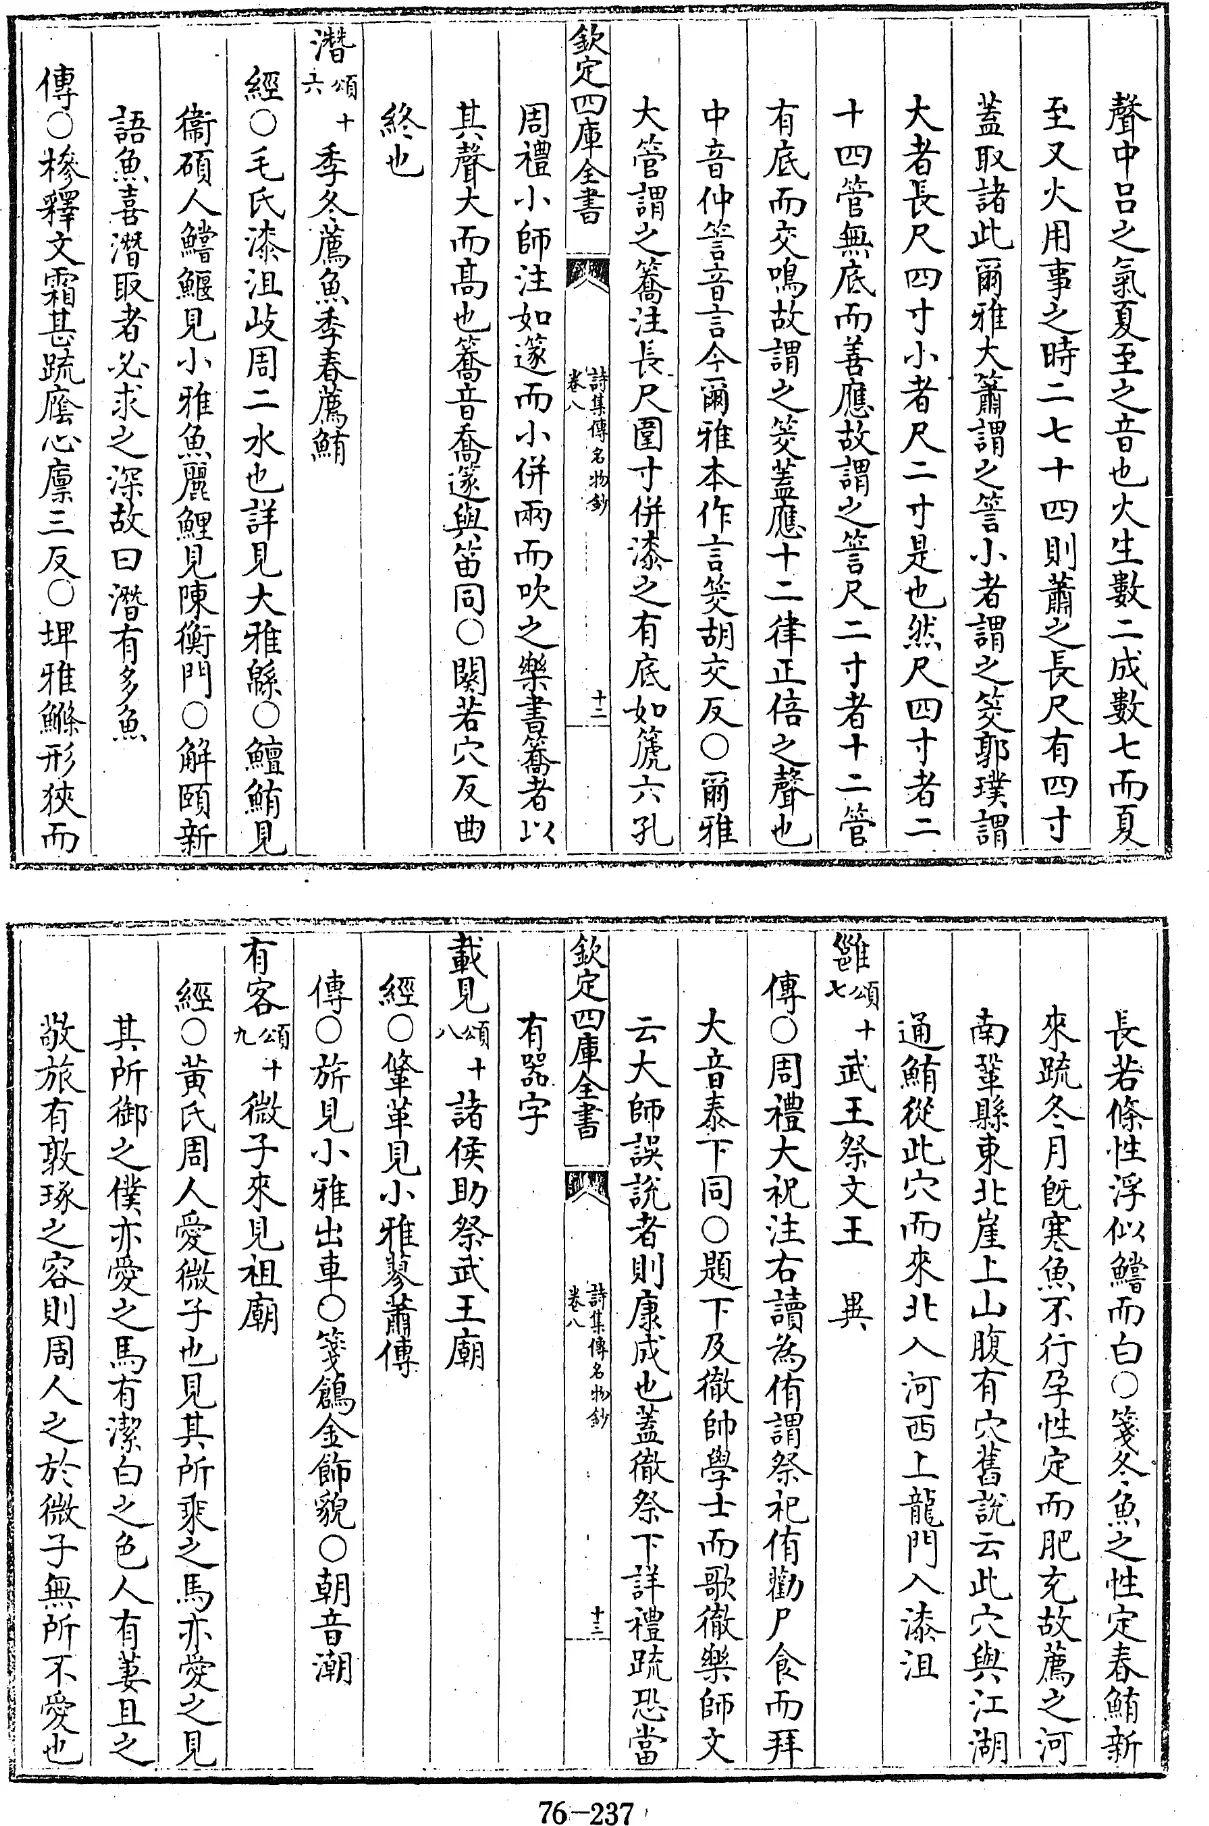 聲中呂之氣夏至之音也火生數二成數七而夏
至又火用事之時二七十四則蕭之長尺有四寸
蓋取諸此爾雅大簫謂之䇾小者謂之筊郭璞謂
大者長尺四寸小者尺二寸是也然尺四寸者二
十四管無底而善應故謂之䇾尺二寸者十二管
有底而交鳴故謂之筊蓋應十二律正倍之聲也
中音仲䇾音言今爾雅本作言筊胡交反○爾雅
大管謂之簥注長尺圍寸併漆之有底如篪六孔
欽定四庫全書
詩集傳名物鈔
卷八
十二
周禮小師注如篴而小併兩而吹之樂書簥者以
其聲大而髙也簥音喬篴與笛同○闋若穴反曲
終也
潛頌十六 季冬薦魚季春薦鮪
經○毛氏漆沮岐周二水也詳見大雅緜○鱣鮪見
衞碩人鱨鰋見小雅魚麗鯉見陳衡門○解頤新
語魚喜潛取者必求之深故曰潛有多魚
傳○槮釋文霜甚疏廕心廪三反○埤雅鰷形狹而
長若條性浮似鱨而白○箋冬魚之性定春鮪新
來疏冬月旣寒魚不行孕性定而肥充故薦之河
南鞏縣東北崖上山腹有穴舊說云此穴與江湖
通鮪從此穴而來北入河西上龍門入漆沮
雝頌十七 武王祭文王 異
傳○周禮大祝注右讀為侑謂祭祀侑勸尸食而拜
大音泰下同○題下及徹帥學士而歌徹樂師文
云大師誤說者則康成也蓋徹祭下詳禮疏恐當
欽定四庫全書
詩集傳名物鈔
卷八
十三
有器字
載見頌十八 諸侯助祭武王廟
經○鞗革見小雅蓼蕭傳
傳○旂見小雅出車○箋鶬金飾貌○朝音潮
有客頌十九 微子來見祖廟
經○黄氏周人愛微子也見其所乘之馬亦愛之見
其所御之僕亦愛之馬有潔白之色人有萋且之
敬旅有敦琢之容則周人之於微子無所不愛也
76-237